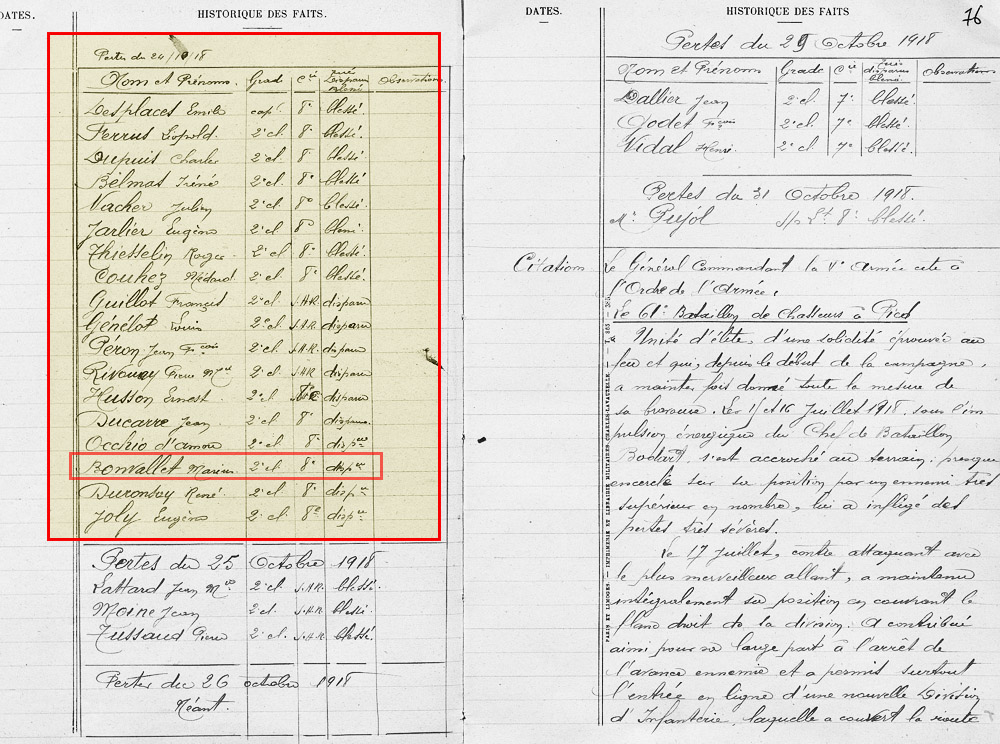 DATES.
HISTORIQUE DES FAITS.
Pertes du 24/10/18
Nom et Prénoms. Grade Cie Tué Disparu Blessé Observations
Desplaces Emile cap^l 8° blessé.
Ferrus Léopold 2e cl. 8° blessé.
Dupuis Charles 2e cl. 8° blessé.
Belmas Iréné 2e cl. 8° blessé
Vacher Julien 2e cl. 8° blessé.
Jarlier Eugène 2e cl. 8° blessé
Thiesselin Roger 2e cl. 8° blessé.
Couhez Médard 2e cl. 8° blessé.
Guillot François 2e cl. S.H.R. disparu
Génélot Louis 2e cl. S.H.R. disparu
Péron Jean Fçois 2e cl. S.H.R. disparu
Pierre Mie 2e cl. S.H.R. disparu
Husson Ernest 2e cl. disparu
Ducarre Jean 2e cl. 8e disparu.
Occhio d'amore 2e cl. 8e disp^u
Bonvallet Marius 2e cl. 8e disp^u
René 2e cl. 8e disp^u
Joly Eugène 2e cl. 8e disp^u
Pertes du 25 Octobre 1918
Lattard Jean Mie 2e cl. S.H.R. blessé.
Moine Jean 2e cl. S.H.R. blessé.
Tussaud Pierre 2e cl. S.H.R. blessé.
Pertes du 26 octobre 1918
Néant.
DATES.
HISTORIQUE DES FAITS
76
Pertes du 29 Octobre 1918
Nom et Prénoms Grade Cie Tués disparus blessés Observations
Dallier Jean 2e cl. 7e blessé.
Godet Fçois 2e cl. 7e blessé.
Vidal Henri. 2e cl. 7e blessé.
Pertes du 31 Octobre 1918.
Mr Pujol S/s Lt 8e blessé.
Citation
Le Général Commandant la Ve Armée cite à
l'Ordre de l'Armée,
Le 61e Bataillon de Chasseurs à Pied
Unité d'élite, d'une solidité éprouvée au
feu et qui, depuis le début de la campagne,
a maintes fois donné toute la mesure de
sa bravoure. Les 15 et 16 Juillet 1918. sous l'im
pulsion énergique du Chef de Bataillon
Bodart, s'est accroché au terrain; presque
encerclé sur sa position par un ennemi très
supérieur en nombre, lui a infligé des
pertes très sévères.
Le 17 Juillet, contre attaquant avec
le plus merveilleux allant, a maintenu
intégralement sa position en couvrant le
flanc droit de la division. A contribué
ainsi pour une large part à l'arrêt de
l'avance ennemie et a permis surtout
l'entrée en ligne d'une nouvelle Division
d'Infanterie, laquelle a couvert la route
PARIS ET LIMOGES. — IMPRIMERIE ET LIBRAIRIE MILITAIRES CHARLES-LAVAUZELLE.